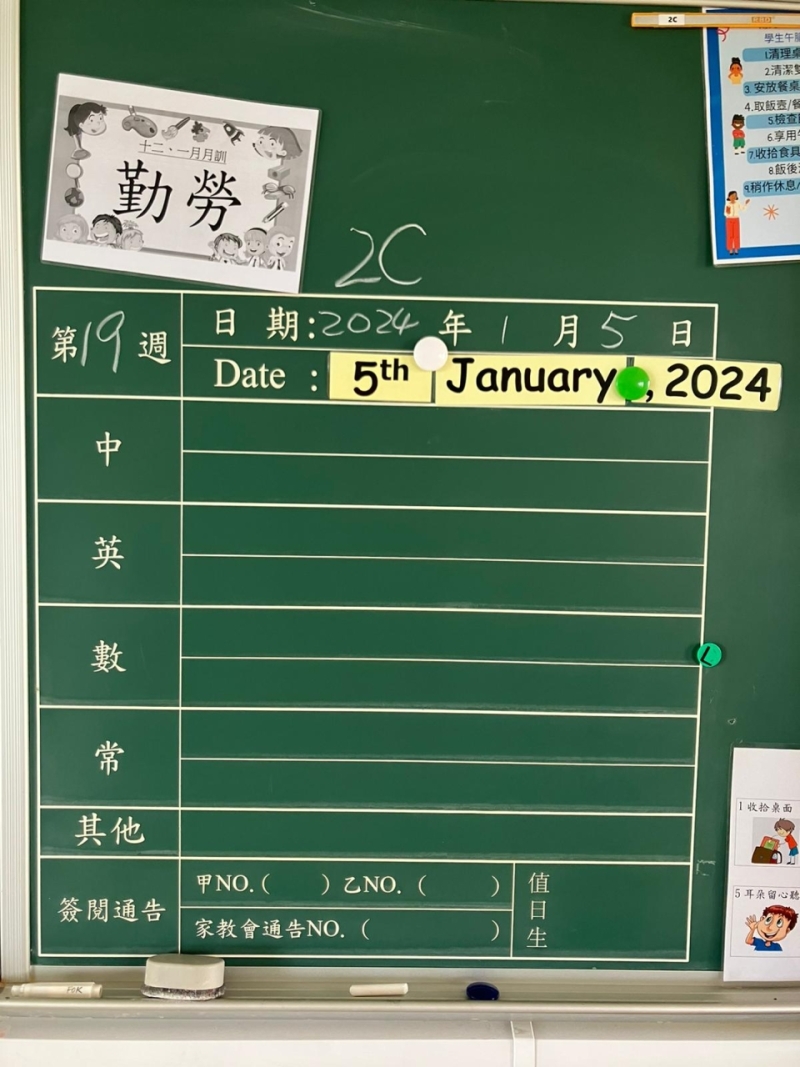 2C
學生午膳
1清理桌
2.清潔雙
3.安放餐桌
4.取飯壺/餐
5.檢查
6.享用
7.收拾食具
8.飯後
9.稍作休息/
十二、一月月訓
勤勞
2C
第19週
日期:2024年1月5日
Date : 5th January, 2024
中
英
數
常
其他
簽閱通告
甲NO.( ) 乙NO. ( )
家教會通告NO. ( )
值日生
L
1 收拾桌面
5 耳朵留心聽